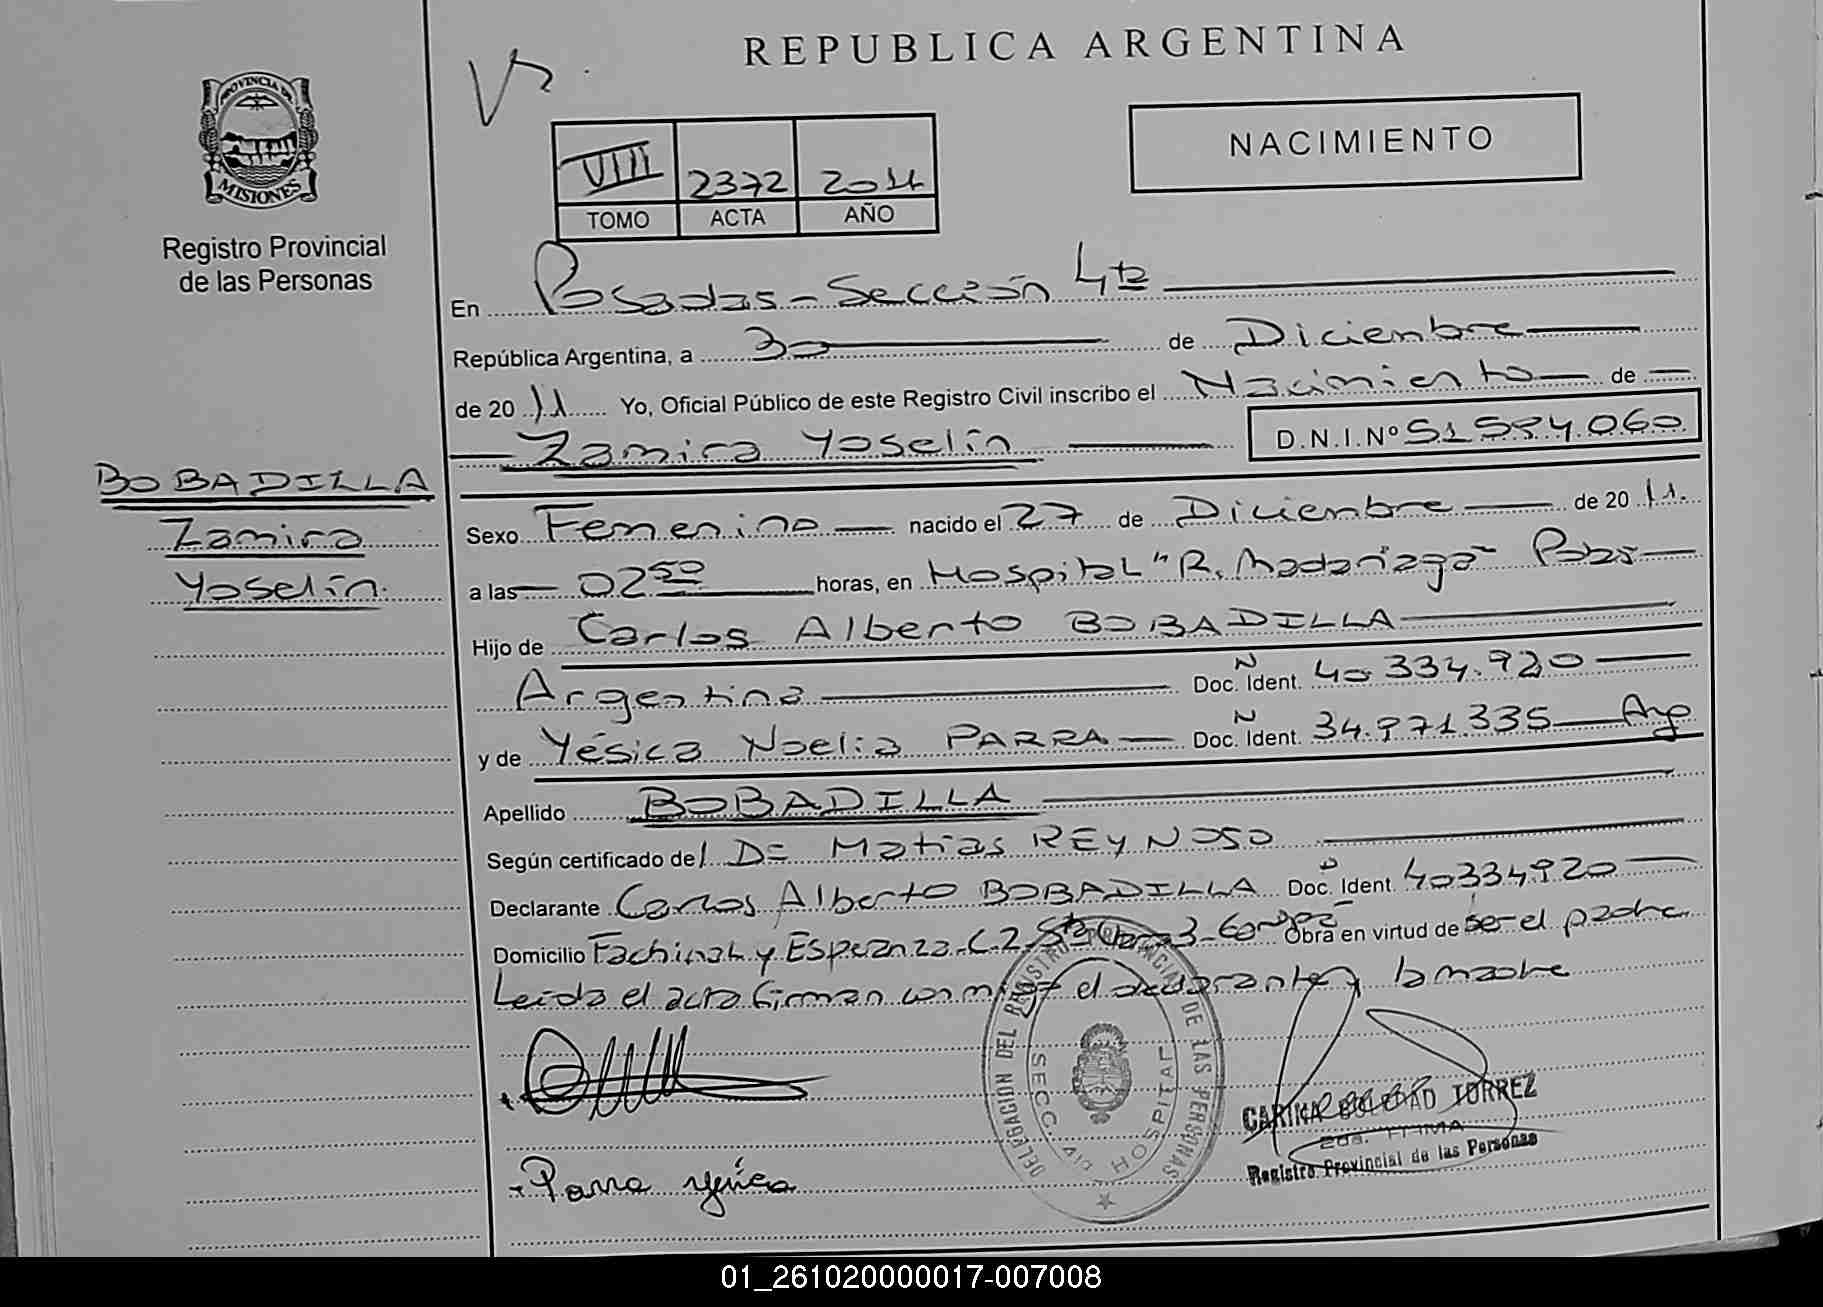 REPUBLICA ARGENTINA
NACIMIENTO
PROVINCIA DE
MISIONES
Registro Provincial
de las Personas
VIII 2372 2011
TOMO ACTA AÑO
En Posadas - Sección 4ta
República Argentina, a 30 de Diciembre
de 20 11 Yo, Oficial Público de este Registro Civil inscribo el Nacimiento de
Zamira Yoselín D.N.I.Nº 51584060
BOBADILLA
Zamira
Yoselín.
Sexo Femenino nacido el 27 de Diciembre de 20 11.
a las 02 50 horas, en Hospital "R. Madariaga"
Hijo de Carlos Alberto BOBADILLA
Argentina Doc. Ident. N 40.334.920
y de Yésica Noelia PARRA Doc. Ident. N 34.971.335 Arg
Apellido BOBADILLA
Según certificado del Dr Matías REYNOSO
Declarante Carlos Alberto BOBADILLA Doc. Ident. 40334920
Domicilio Fachinal y Esperanza - C.2 Obra en virtud de ser el padre
Leída el acta firman conmigo el declarante y la madre
DELEGACION DEL REGISTRO PROVINCIAL DE LAS PERSONAS
SECC 4ta HOSPITAL
CARINA SOLEDAD TORREZ
Registro Provincial de las Personas
Parra Yésica
01_261020000017-007008